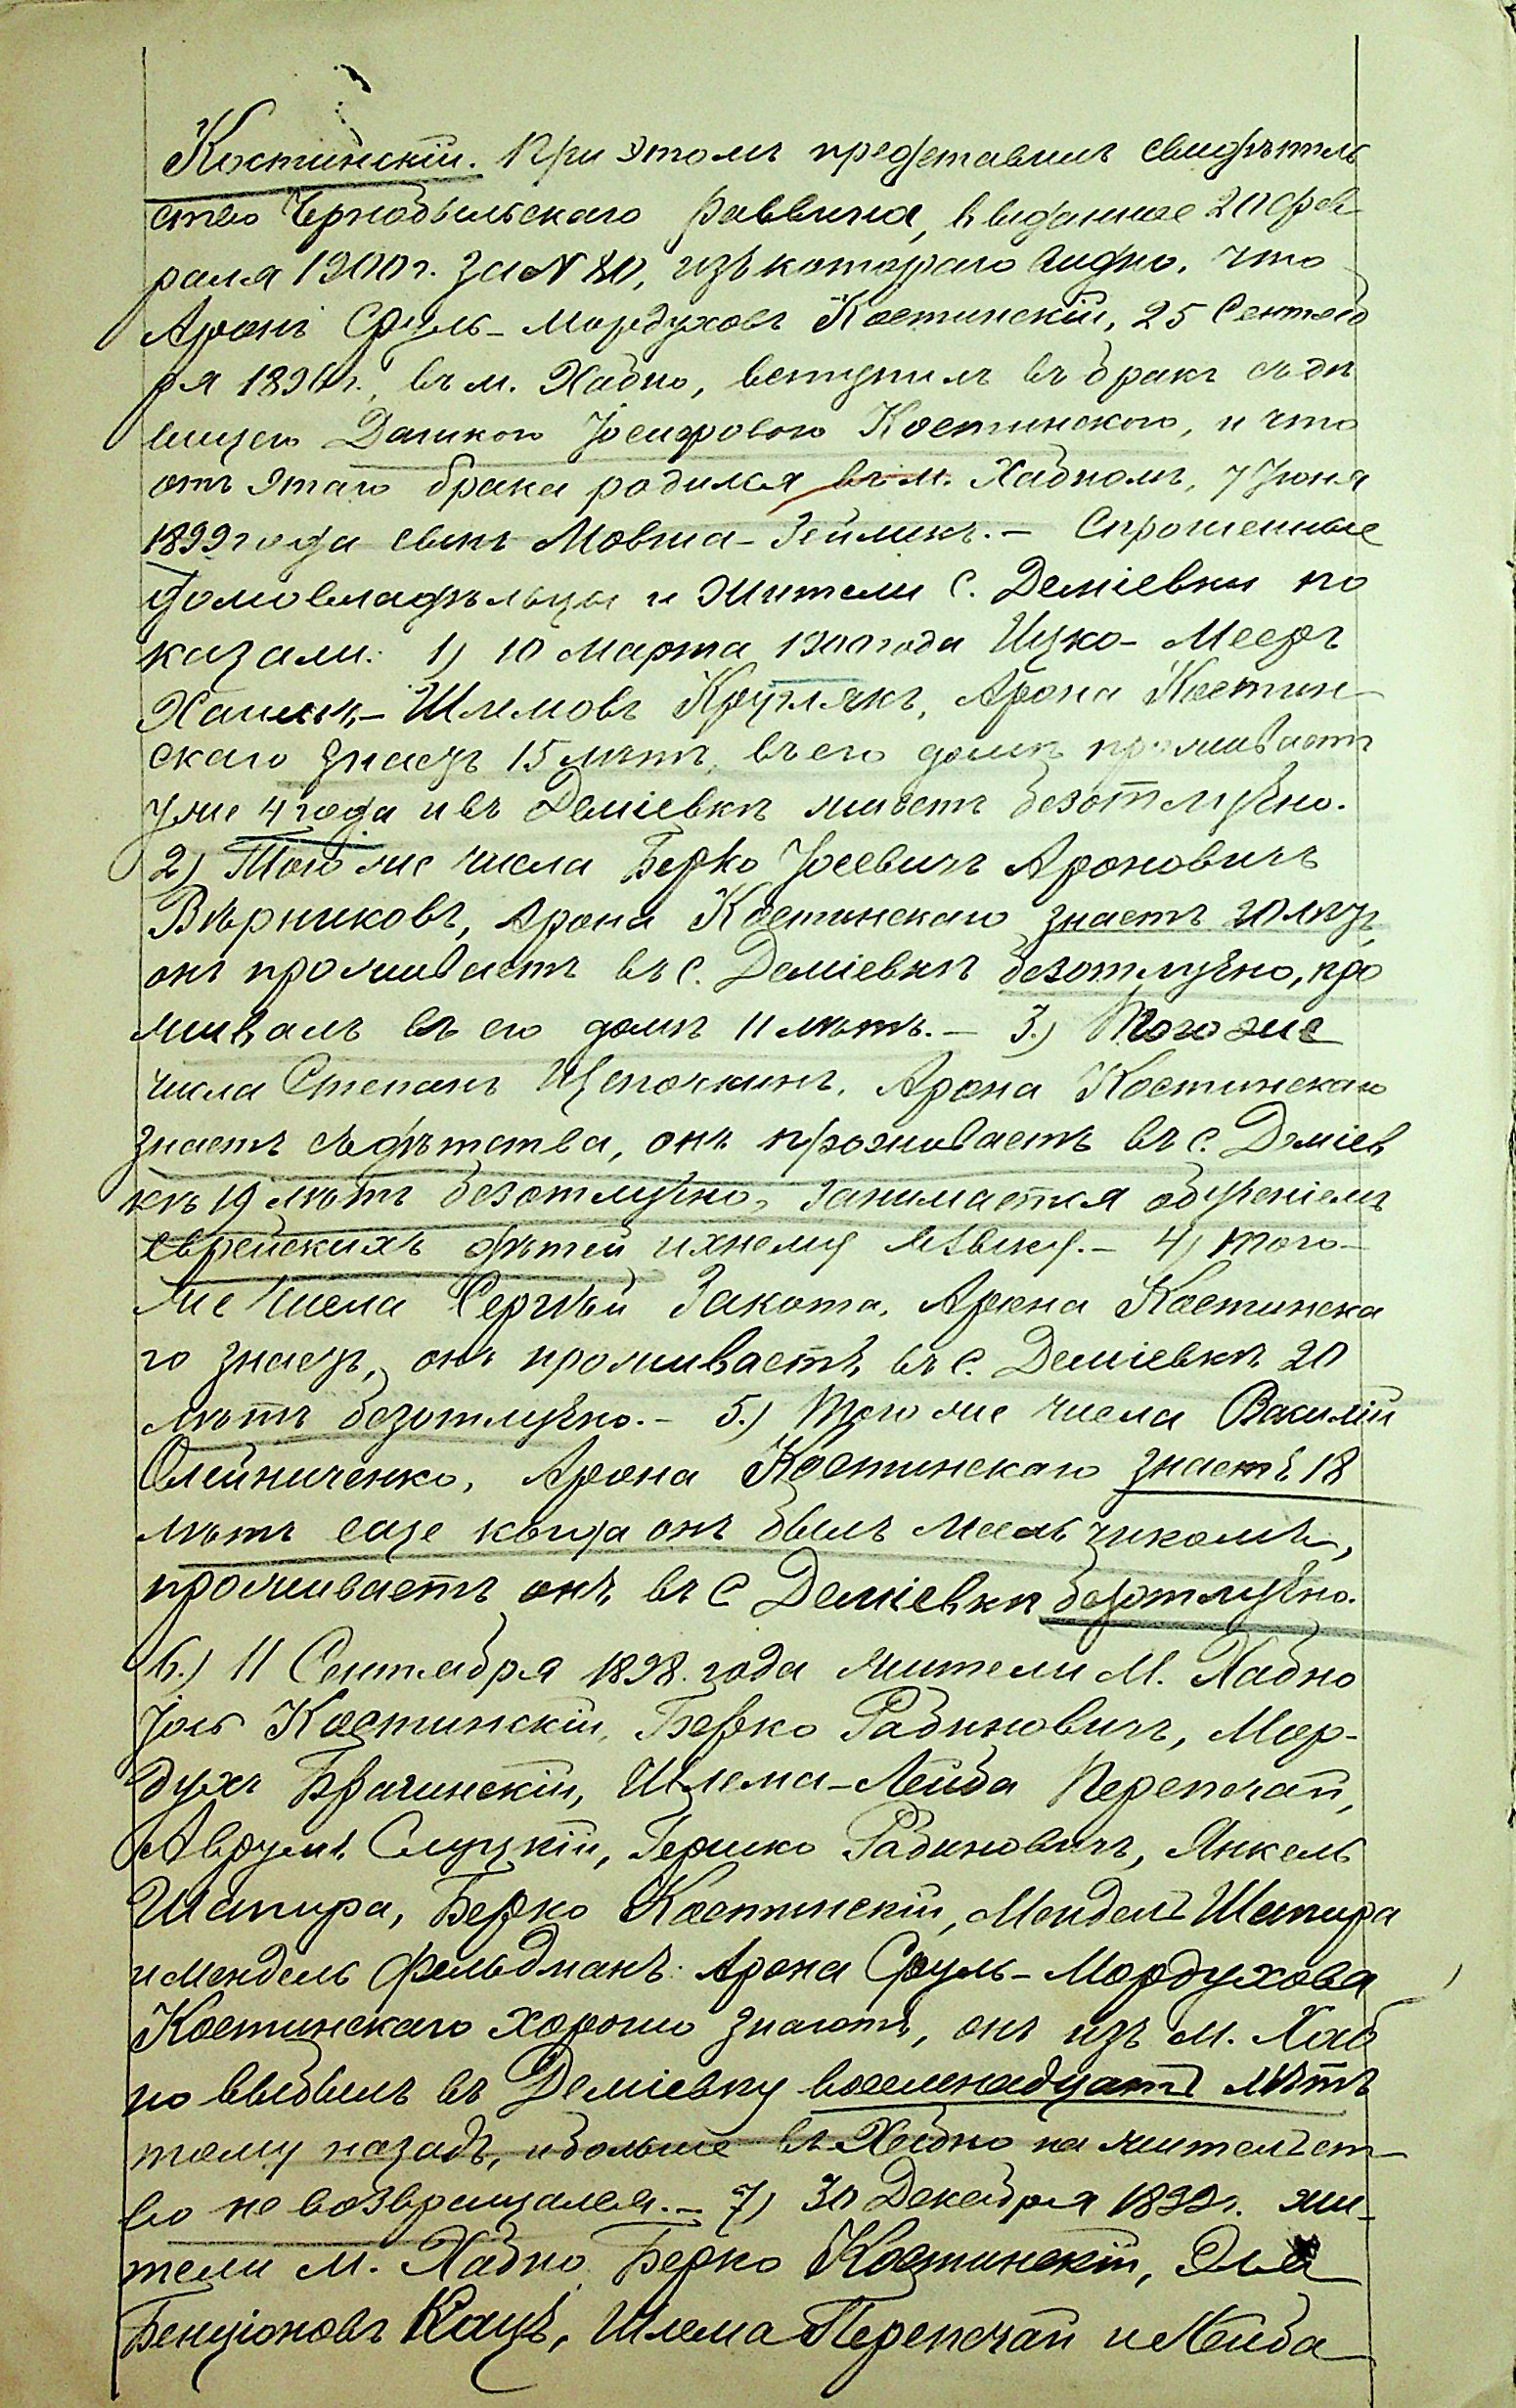 Костинскій. При этомъ представилъ свидѣтель
ство Чернобыльскаго Раввина, выданное 20 фев
раля 1900 г. за № 80, изъ котораго видно, что
Аронъ Сруль-Мордуховъ Костинскій, 25 Сентяб
ря 189 г., въ м. Хабно, вступилъ въ бракъ съ дѣ
вицею Дашкою Іосифовою Костинскою, и что
отъ этаго брака родился въ м. Хабномъ, 7 Іюня
1899 года сынъ Мовша-Зейликъ.- Спрошенные
домовладѣльцы и жители С. Деміевки по
казали: 1) 10 Марта 1900 года Ицко-Мееръ
Хаимъ-Шлемовъ Круглякъ, Арона Костин-
скаго знаетъ 15 лѣтъ, въ его домѣ проживаетъ
уже 4 года и въ Деміевкѣ живетъ безотлучно.
2) Того же числа Берко Іосевичъ Ароновичъ
Вѣрниковъ, Арона Костинскаго знаетъ 20 лѣтъ,
онъ проживаетъ въ с. Деміевкѣ безотлучно, про
живалъ въ его домѣ 11 лѣтъ.- 3.) Того же
числа Степанъ Щепочкинъ, Арона Костинскаго
знаетъ съ дѣтства, онъ проживаетъ въ с. Деміев
кѣ 19 лѣтъ безотлучно, занимается обученіемъ
еврейскихъ дѣтей ихнему языку.- 4) Того-
же числа Сергѣй Закота, Арона Костинска
го знаетъ, онъ проживаетъ въ с. Деміевкѣ 20
лѣтъ безотлучно.- 5.) Того же числа Василій
Олейниченко, Арона Костинскаго знаетъ 18
лѣтъ еще когда онъ былъ мальчикомъ,
проживаетъ онъ въ с Деміевкѣ безотлучно.
6.) 11 Сентября 1898 года жители М. Хабно
Іось Костинскій, Берко Рабиновичъ, Мор-
духъ Брагинскій, Шлема-Лейба Перепечай,
Аврумъ Слуцкій, Гершко Рабиновичъ, Янкель
Шапира, Берко Костинскій, Мендель Шапира
и Мендель Фельдманъ: Арона Сруль-Мордухова
Костинскаго хорошо знаютъ, онъ изъ м. Хаб
но выбылъ въ Деміевку восемнадцать лѣтъ
тому назадъ, и больше въ Хабно на жительст-
во не возвращался.- 7) 30 Декабря 1899 г. жи-
тели м. Хабно Берко Костинскій,
Бенціоновъ Кацъ, Шлема Перепечай и Лейба